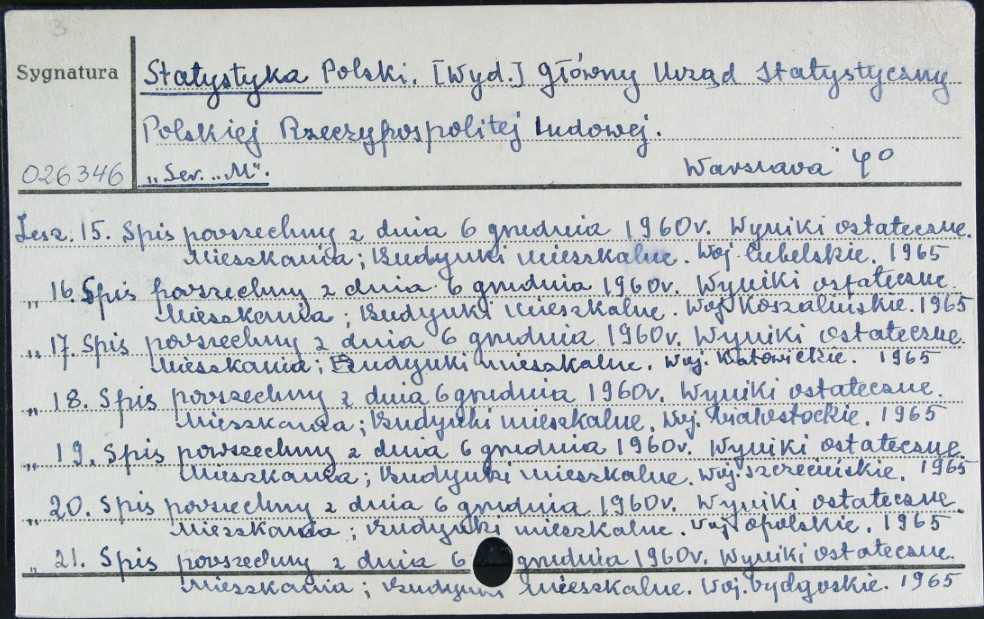 3
Sygnatura
Statystyka Polski. [Wyd.] Główny Urząd Statystyczny
Polskiej Rzeczypospolitej Ludowej.
026346
"Ser. „M".
Warszawa 4°
Zesz. 15. Spis powszechny z dnia 6 grudnia 1960 r. Wyniki ostateczne.
Mieszkania; Budynki mieszkalne. Woj. lubelskie. 1965
" 16. Spis powszechny z dnia 6 grudnia 1960 r. Wyniki ostateczne.
Mieszkania; Budynki mieszkalne. Woj. Koszalińskie. 1965
" 17. Spis powszechny z dnia 6 grudnia 1960 r. Wyniki ostateczne.
Mieszkania; Budynki mieszkalne. Woj. Katowickie. 1965
" 18. Spis powszechny z dnia 6 grudnia 1960 r. Wyniki ostateczne.
Mieszkania; Budynki mieszkalne. Woj. białostockie. 1965
" 19. Spis powszechny z dnia 6 grudnia 1960 r. Wyniki ostateczne.
Mieszkania; Budynki mieszkalne. Woj. szczecińskie. 1965
" 20. Spis powszechny z dnia 6 grudnia 1960 r. Wyniki ostateczne.
Mieszkania; Budynki mieszkalne. Woj. opolskie. 1965
" 21. Spis powszechny z dnia 6 grudnia 1960 r. Wyniki ostateczne.
Mieszkania; Budynki mieszkalne. Woj. bydgoskie. 1965